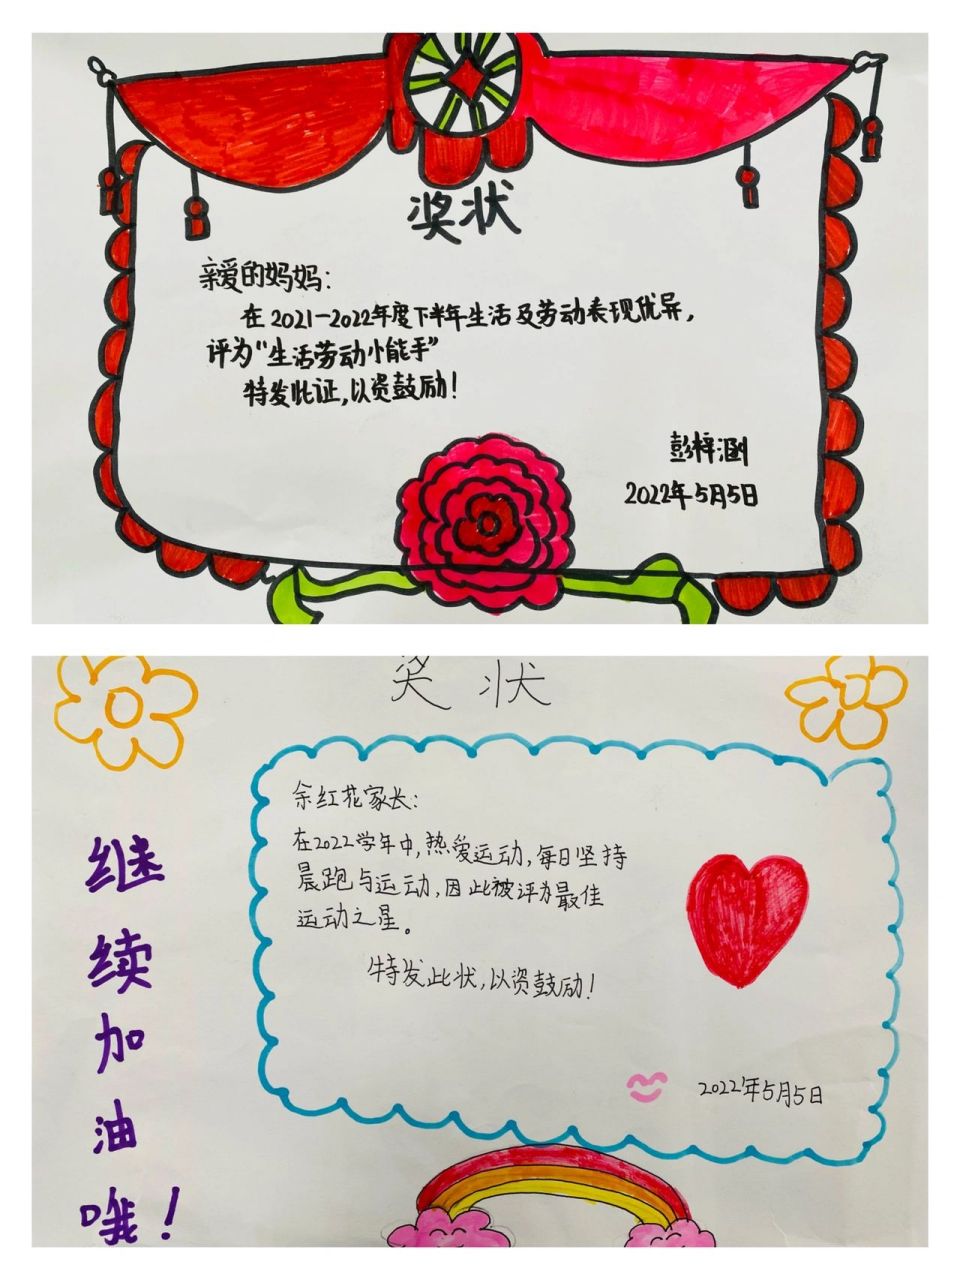 奖状
亲爱的妈妈:
在2021-2022年度下半年生活及劳动表现优异,
评为"生活劳动小能手"
特发此证,以资鼓励!
彭梓涵
2022年5月5日
奖状
余红花家长:
在2022学年中,热爱运动,每日坚持
晨跑与运动,因此被评为最佳
运动之星。
特发此状,以资鼓励!
2022年5月5日
继续加油哦!